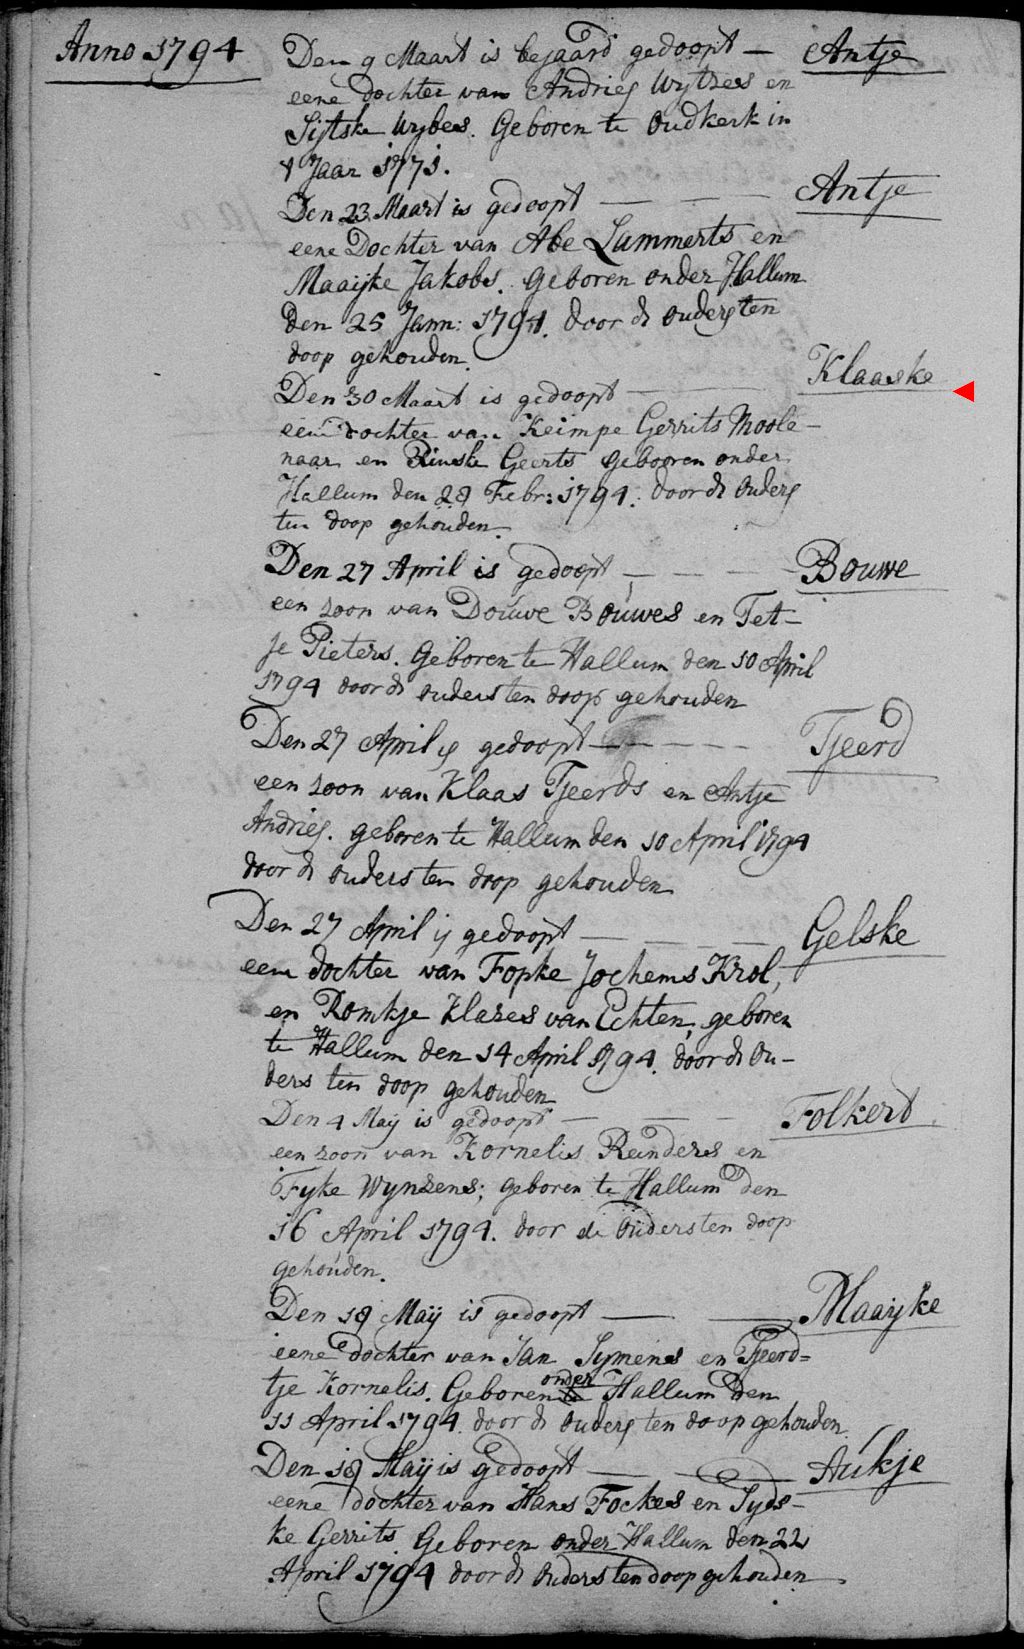 Anno 1794
Den 9 Maart is bejaard gedoopt — Antje
eene dochter van Andries Wytzes en
Sijtske Wybes. Geboren te Oudkerk in
't Jaar 1771.
Den 23 Maart is gedoopt — — — Antje
eene Dochter van Abe Lammerts en
Maaijke Jakobs. Geboren onder Hallum
den 25 Jann: 1794. door de ouders ten
doop gehouden.
Den 30 Maart is gedoopt — Klaaske
een dochter van Keimpe Gerrits Moole-
naar en Rinske Geerts gebooren onder
Hallum den 28 Febr: 1794. door de Ouders
ten doop gehouden.
Den 27 April is gedoopt — — — Bouwe
een zoon van Douwe Bouwes en Tet-
je Pieters. Geboren te Hallum den 10 April
1794 door de ouders ten doop gehouden
Den 27 April is gedoopt — — — — Tjeerd
een zoon van Klaas Tjeerds en Antje
Andries. geboren te Hallum den 10 April 1794
door de ouders ten doop gehouden
Den 27 April is gedoopt — — — — Gelske
eene dochter van Fopke Jochems Krol,
en Romkje Klazes van Echten, geboren
te Hallum den 14 April 1794. door de Ou-
ders ten doop gehouden
Den 4 Maij is gedoopt — — — Folkert
een zoon van Kornelis Reinders en
Fyke Wynzens; geboren te Hallum den
16 April 1794. door de Ouders ten doop
gehouden.
Den 18 Maij is gedoopt — — Maaijke
eene dochter van Jan Symens en Tjeerd-
onder
tje Kornelis. Geboren te Hallum den
11 April 1794. door de Ouders ten doop gehouden.
Den 18 Maij is gedoopt — — Aukje
eene dochter van Hans Fockes en Syds-
ke Gerrits. Geboren onder Hallum den 22
April 1794 door de Ouders ten doop gehouden